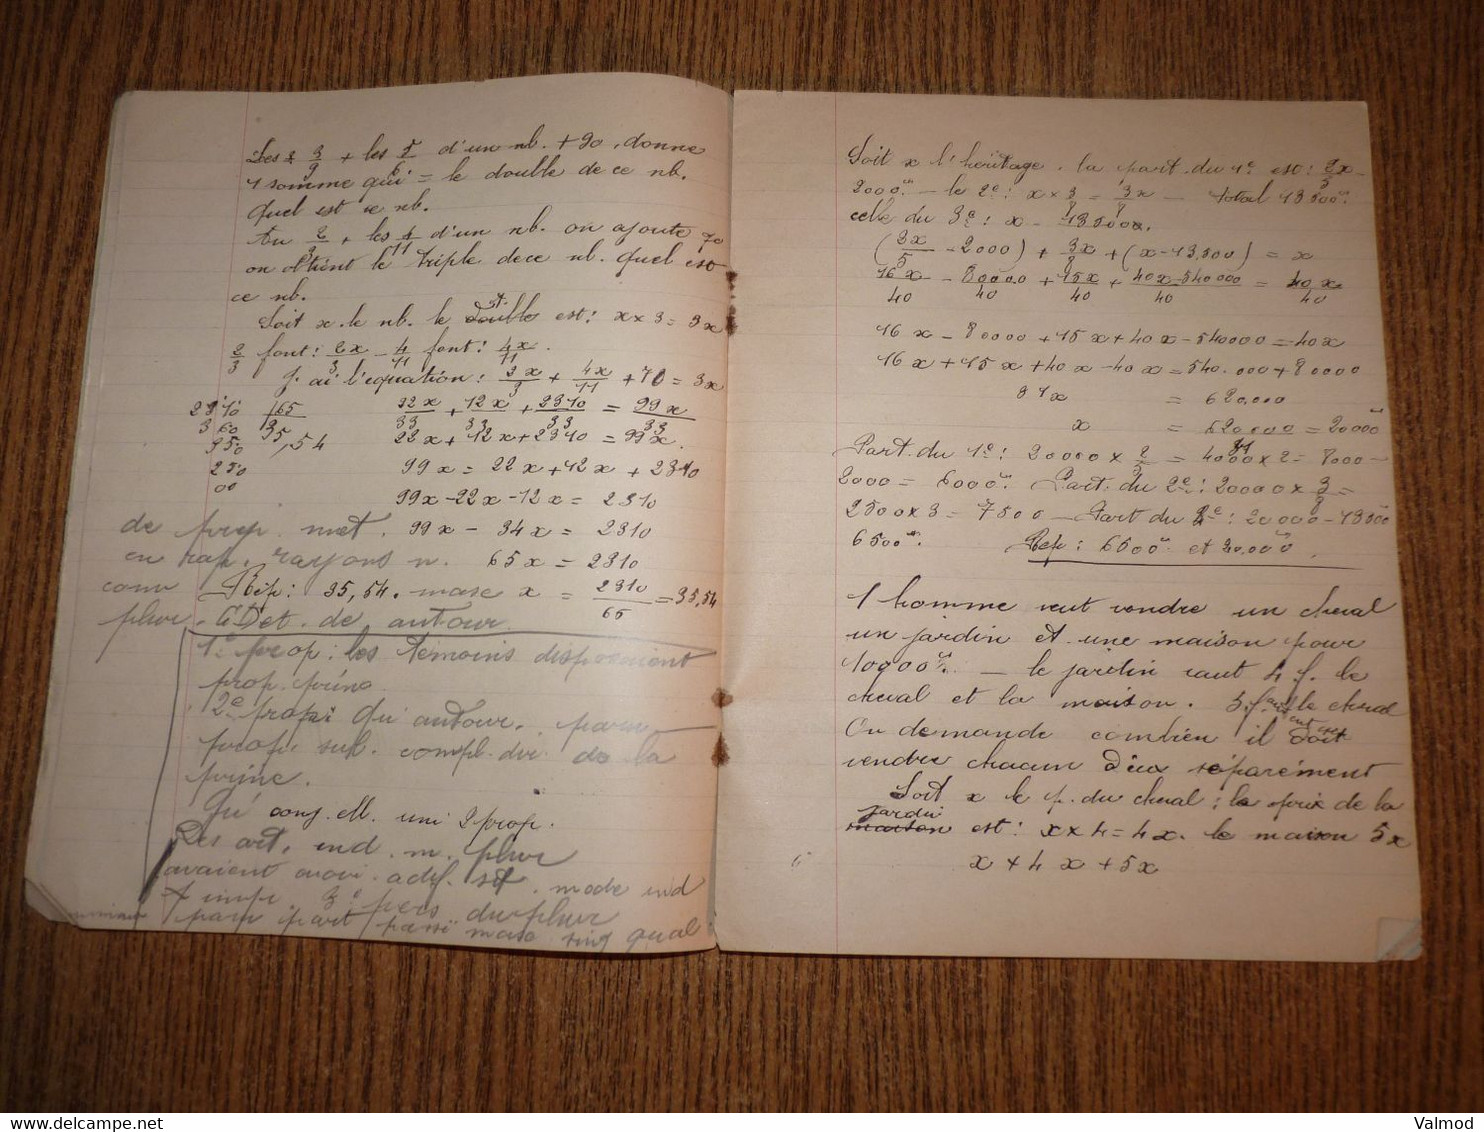 + les d'un nb. + 90, donne
1 somme qui = le double de ce nb.
Quel est ce nb.
Au 2/3 + les 4/11 d'un nb. on ajoute 70
on obtient le triple de ce nb. Quel est
ce nb.
Soit x le nb. le double est : x × 3 = 3x
2/3 font : 2x/3 - 4/11 font : 4x/11.
J'ai l'équation : 2x/3 + 4x/11 + 70 = 3x
2310 | 65
360 35,54
350
250
00
22x/33 + 12x/33 + 2310/33 = 99x/33
22x + 12x + 2310 = 99x.
99x = 22x + 12x + 2310
99x - 22x - 12x = 2310
de prop. mat. 99x - 34x = 2310
en rap. rayons n. 65x = 2310
conv Rép : 35,54. masc x = 2310/65 = 35,54
plur. Det. de autour
1° prop : les témoins disposaient
prop. prine
2e prop : qu'autour.
prop. sub. compl. dir. de la
prine.
Qu' conj. ell. uni 2 prop.
Les art. ind. m. plur
avaient avoir. mode ind
imp. 3e pers du plur
part passé masc sing qual
Soit x l'héritage. la part du 1e est : 2x/5 -
2000 - le 2e : x × 3/8 = 3x/8 - total 13500
celle du 3e : x - 13500.
(2x/5 - 2000) + 3x/8 + (x - 13.500) = x
16x/40 - 80000/40 + 15x/40 + 40x - 540000/40 = 40x/40
16x - 80000 + 15x + 40x - 540000 = 40x
16x + 15x + 40x - 40x = 540.000 + 80000
31x = 620.000
x = 620000/31 = 20000
Part du 1e : 20000 × 2/5 = 4000 × 2 = 8000 -
2000 = 6000. Part. du 2e : 20000 × 3/8 =
2500 × 3 = 7500 - Part du : 20000 - 13500
6500. Rep : 6500 et 20.000.
1 homme veut vendre un cheval
un jardin et une maison pour
10000. - le jardin vaut 4 f. le
cheval et la maison. 5 f. le cheval
On demande combien il doit
vendre chacun d'eux séparément
Soit x le p. du cheval : le prix de la
jardin
maison est : x × 4 = 4x. le maison 5x
x + 4x + 5x
Valmod